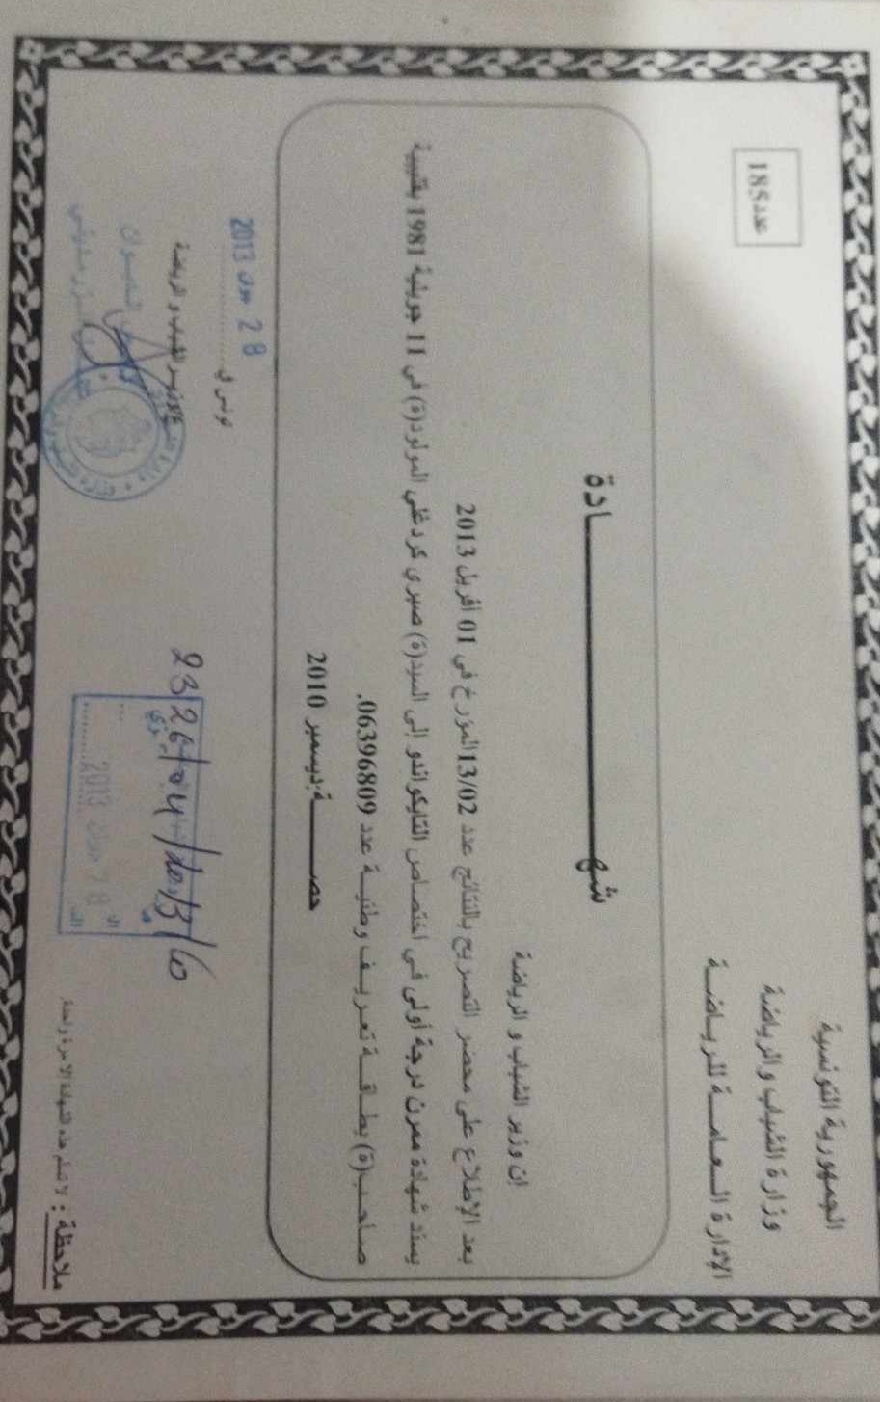 الجمهورية التونسية
وزارة الشباب والرياضة
الإدارة العامة للرياضة
عدد 185
شهادة
ان وزير الشباب و الرياضة
بعد الإطلاع على محضر التصريح بالنتائج عدد 13/02 المؤرخ في 01 أفريل 2013
يسند شهادة ممرن درجة أولى في اختصاص التايكواندو إلى السيد(ة) صبري كردغلي المولود(ة) في 11 جويلية 1981 بقليبية
صاحب(ة) بطاقة تعريف وطنية عدد 06396809.
حصة:ديسمبر 2010
تونس في
28 جوان 2013
وزير الشباب و الرياضة
28 جوان 2013
ملاحظة : لا تسلم هذه الشهادة الا مرة واحدة